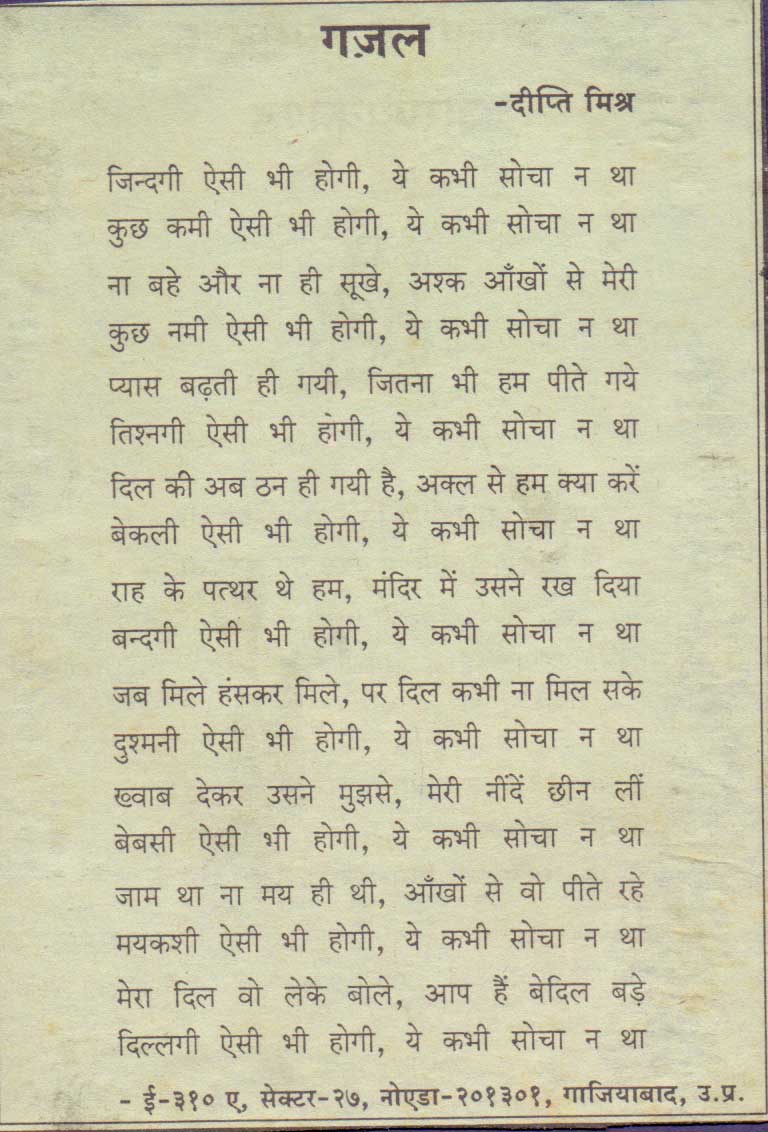 गज़ल
-दीप्ति मिश्र
जिन्दगी ऐसी भी होगी, ये कभी सोचा न था
कुछ कमी ऐसी भी होगी, ये कभी सोचा न था
ना बहे और ना ही सूखे, अश्क आँखों से मेरी
कुछ नमी ऐसी भी होगी, ये कभी सोचा न था
प्यास बढ़ती ही गयी, जितना भी हम पीते गये
तिश्नगी ऐसी भी होगी, ये कभी सोचा न था
दिल की अब ठन ही गयी है, अक्ल से हम क्या करें
बेकली ऐसी भी होगी, ये कभी सोचा न था
राह के पत्थर थे हम, मंदिर में उसने रख दिया
बन्दगी ऐसी भी होगी, ये कभी सोचा न था
जब मिले हंसकर मिले, पर दिल कभी ना मिल सके
दुश्मनी ऐसी भी होगी, ये कभी सोचा न था
ख्वाब देकर उसने मुझसे, मेरी नींदें छीन लीं
बेबसी ऐसी भी होगी, ये कभी सोचा न था
जाम था ना मय ही थी, आँखों से वो पीते रहे
मयकशी ऐसी भी होगी, ये कभी सोचा न था
मेरा दिल वो लेके बोले, आप हैं बेदिल बड़े
दिल्लगी ऐसी भी होगी, ये कभी सोचा न था
- ई-३१० ए, सेक्टर-२७, नोएडा-२०१३०१, गाजियाबाद, उ.प्र.